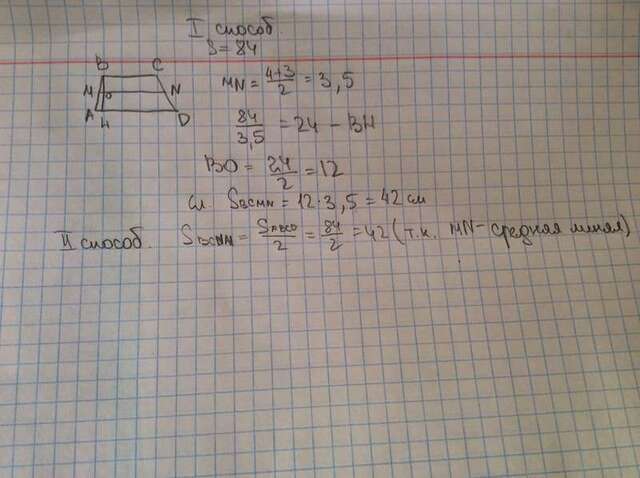 I способ.
S = 84
B C
M O N
A H D
MN = 4+3/2 = 3,5
84/3,5 = 24 - BH
BO = 24/2 = 12
Сл. SBCMN = 12·3,5 = 42 см
II способ. SBCMN = SABCD/2 = 84/2 = 42 (т.к. MN - средняя линия)